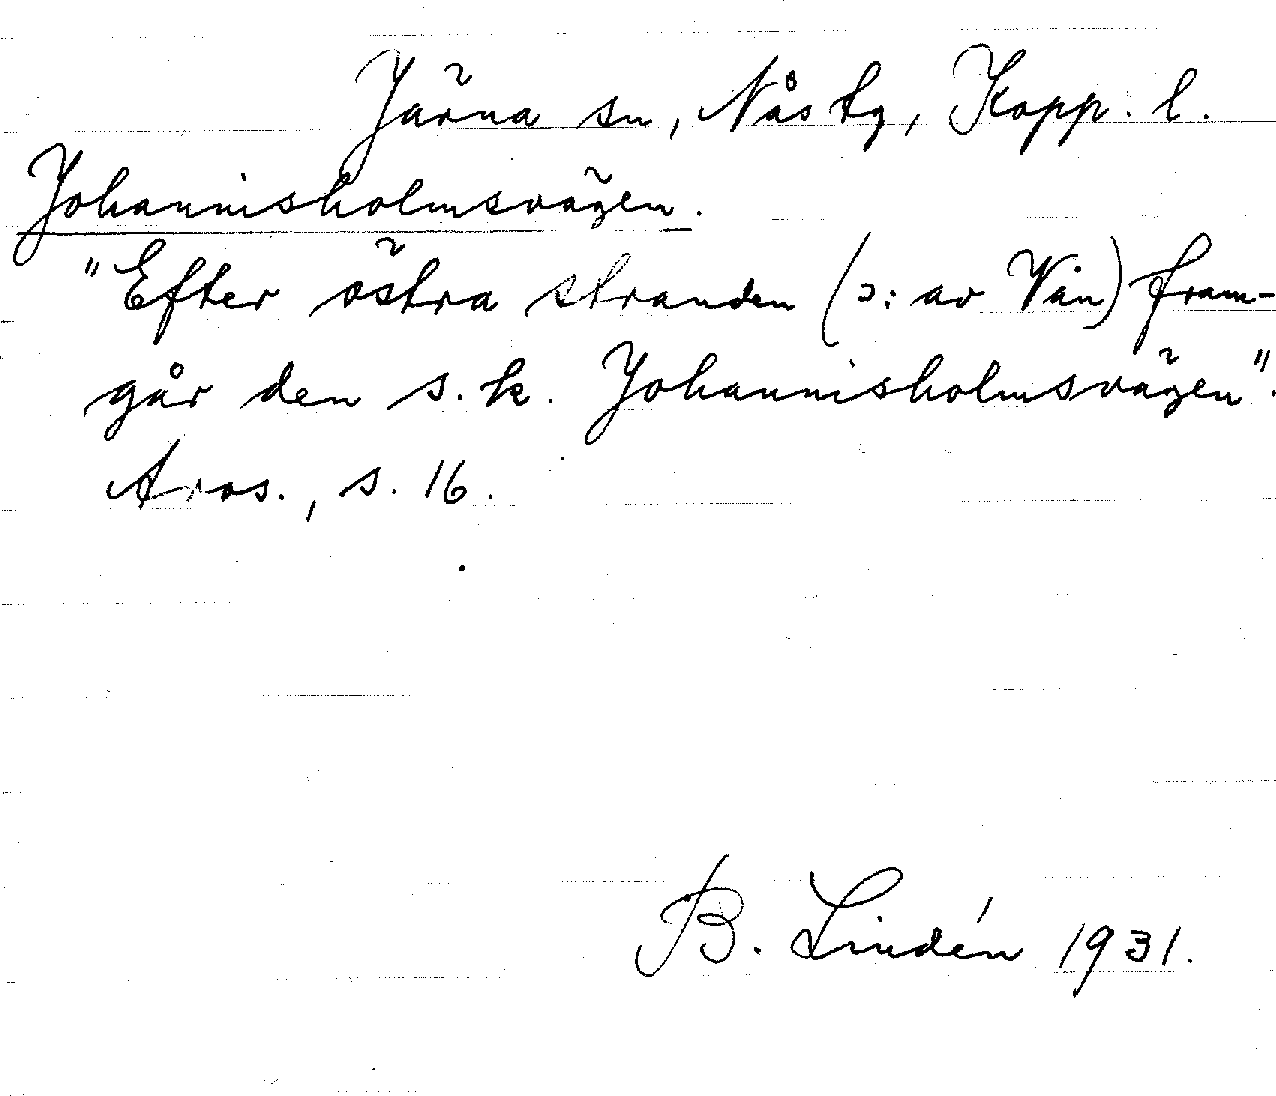 Järna sn, Nås tg, Kopp. l.
Johannisholmsvägen.
"Efter östra stranden (ɔ: av Van) fram-
går den s.k. Johannisholmsvägen".
Aros., s. 16.
B. Lindén 1931.